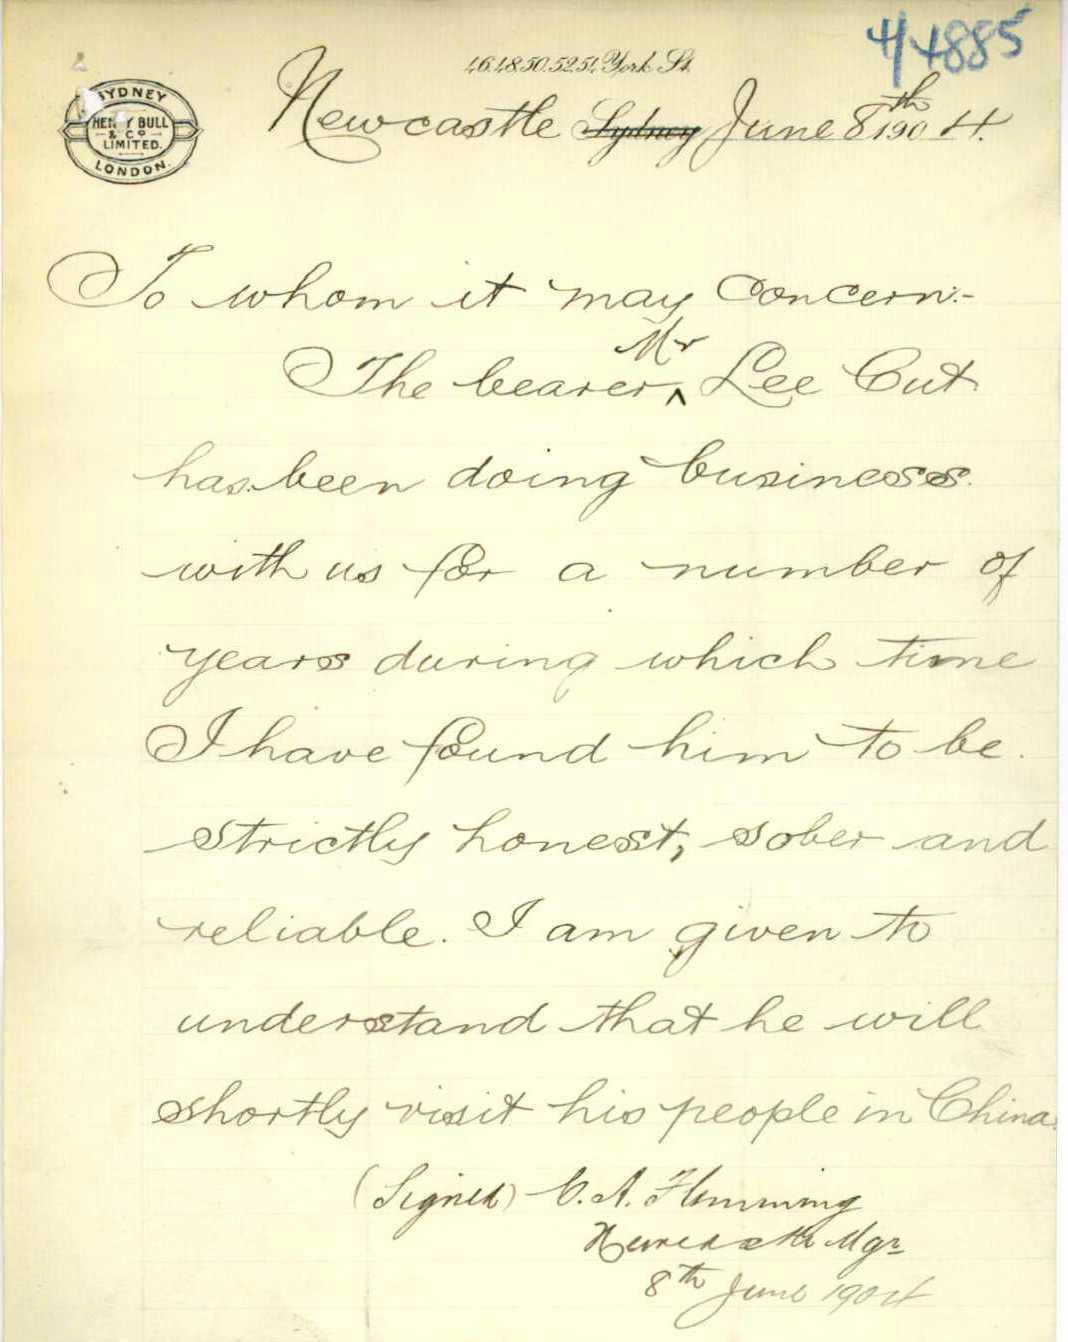 4/4885
46.48.50.52.54, York St.
SYDNEY
HENRY BULL
& Co
LIMITED.
LONDON.
Newcastle Sydney June 8th 1904.
To whom it may concern:-
The bearer ^ Mr Lee Cut
has been doing business
with us for a number of
years during which time
I have found him to be
strictly honest, sober and
reliable. I am given to
understand that he will
shortly visit his people in China.
(Signed) C. A. Flemming
Newcastle Mgr
8th June 1904